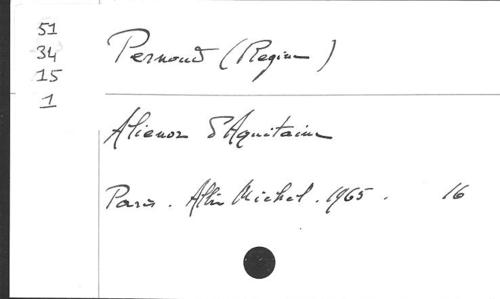 51
34
15
1
Pernoud (Regine)
Alienor d'Aquitaine
Paris. Albin Michel. 1965. 16